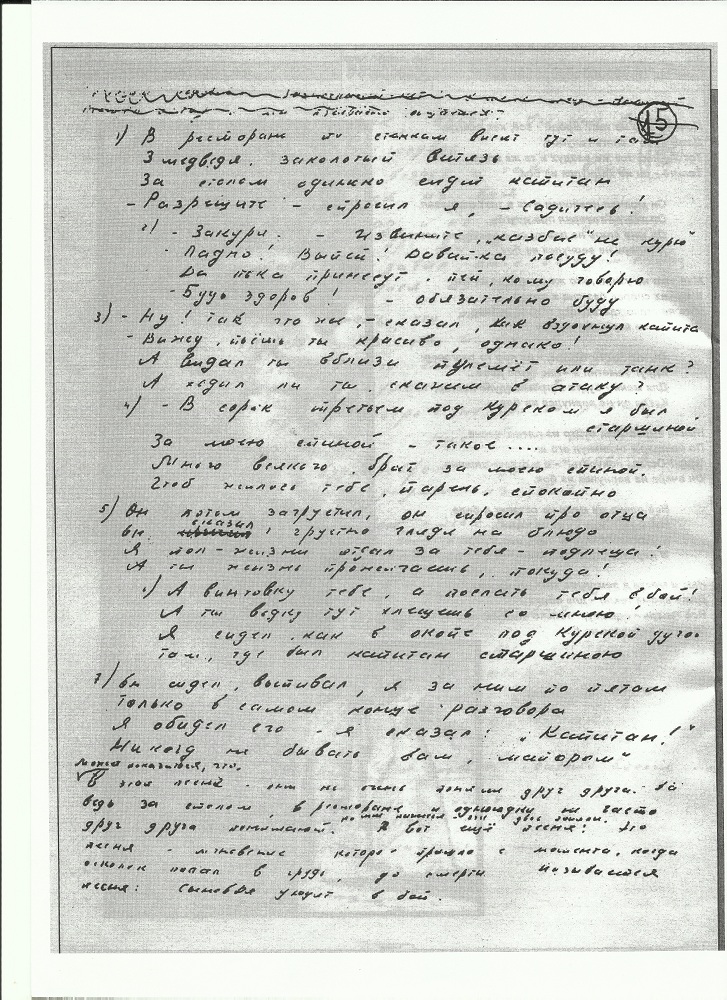 15
1) В ресторане по стенкам висят тут и там
3 медведя, заколотый витязь
За столом одиноко сидит капитан
- Разрешите - спросил я, - Садитесь!
2) - Закури. - Извините, "казбек" не курю
Ладно! Выпей! Давай-ка посуду!
Да пока принесут, пей, кому говорю
- Будь здоров! - обязательно буду
3) - Ну! Так что же, - сказал, как вздохнул капитан
- Вижу, пьёшь ты красиво, однако!
А видал ты вблизи пулемёт или танк?
А ходил ли ты, скажем в атаку?
4) - В сорок третьем под Курском я был
старшиной
За моею спиной - такое ....
Много всякого, брат за моею спиной.
Чтоб жилось тебе, парень, спокойно
5) Он потом загрустил, он спросил про отца
сказал
Он грустно глядя на блюдо
Я пол-жизни отдал за тебя - подлеца!
А ты жизнь прожигаешь, покуда!
6) А винтовку тебе, а послать тебя в бой!
А ты водку тут хлещешь со мною!
Я сидел, как в окопе под Курской дугой
там, где был капитан старшиною
7) Он сидел, выпивал, я за ним по пятам
Только в самом конце разговора
Я обидел его - я сказал: "Капитан!"
Никогда не бывать вам, майором"
Может показаться, что
В этой песне - они не очень поняли друг друга.
ведь за столом, в ресторане и однолюдки не часто
друг друга понимают. А вот ещё песня! Это
песня - мгновение которое прошло с момента, когда
осколок попал в грудь, до смерти называется
песня: Сыновья уходят в бой.